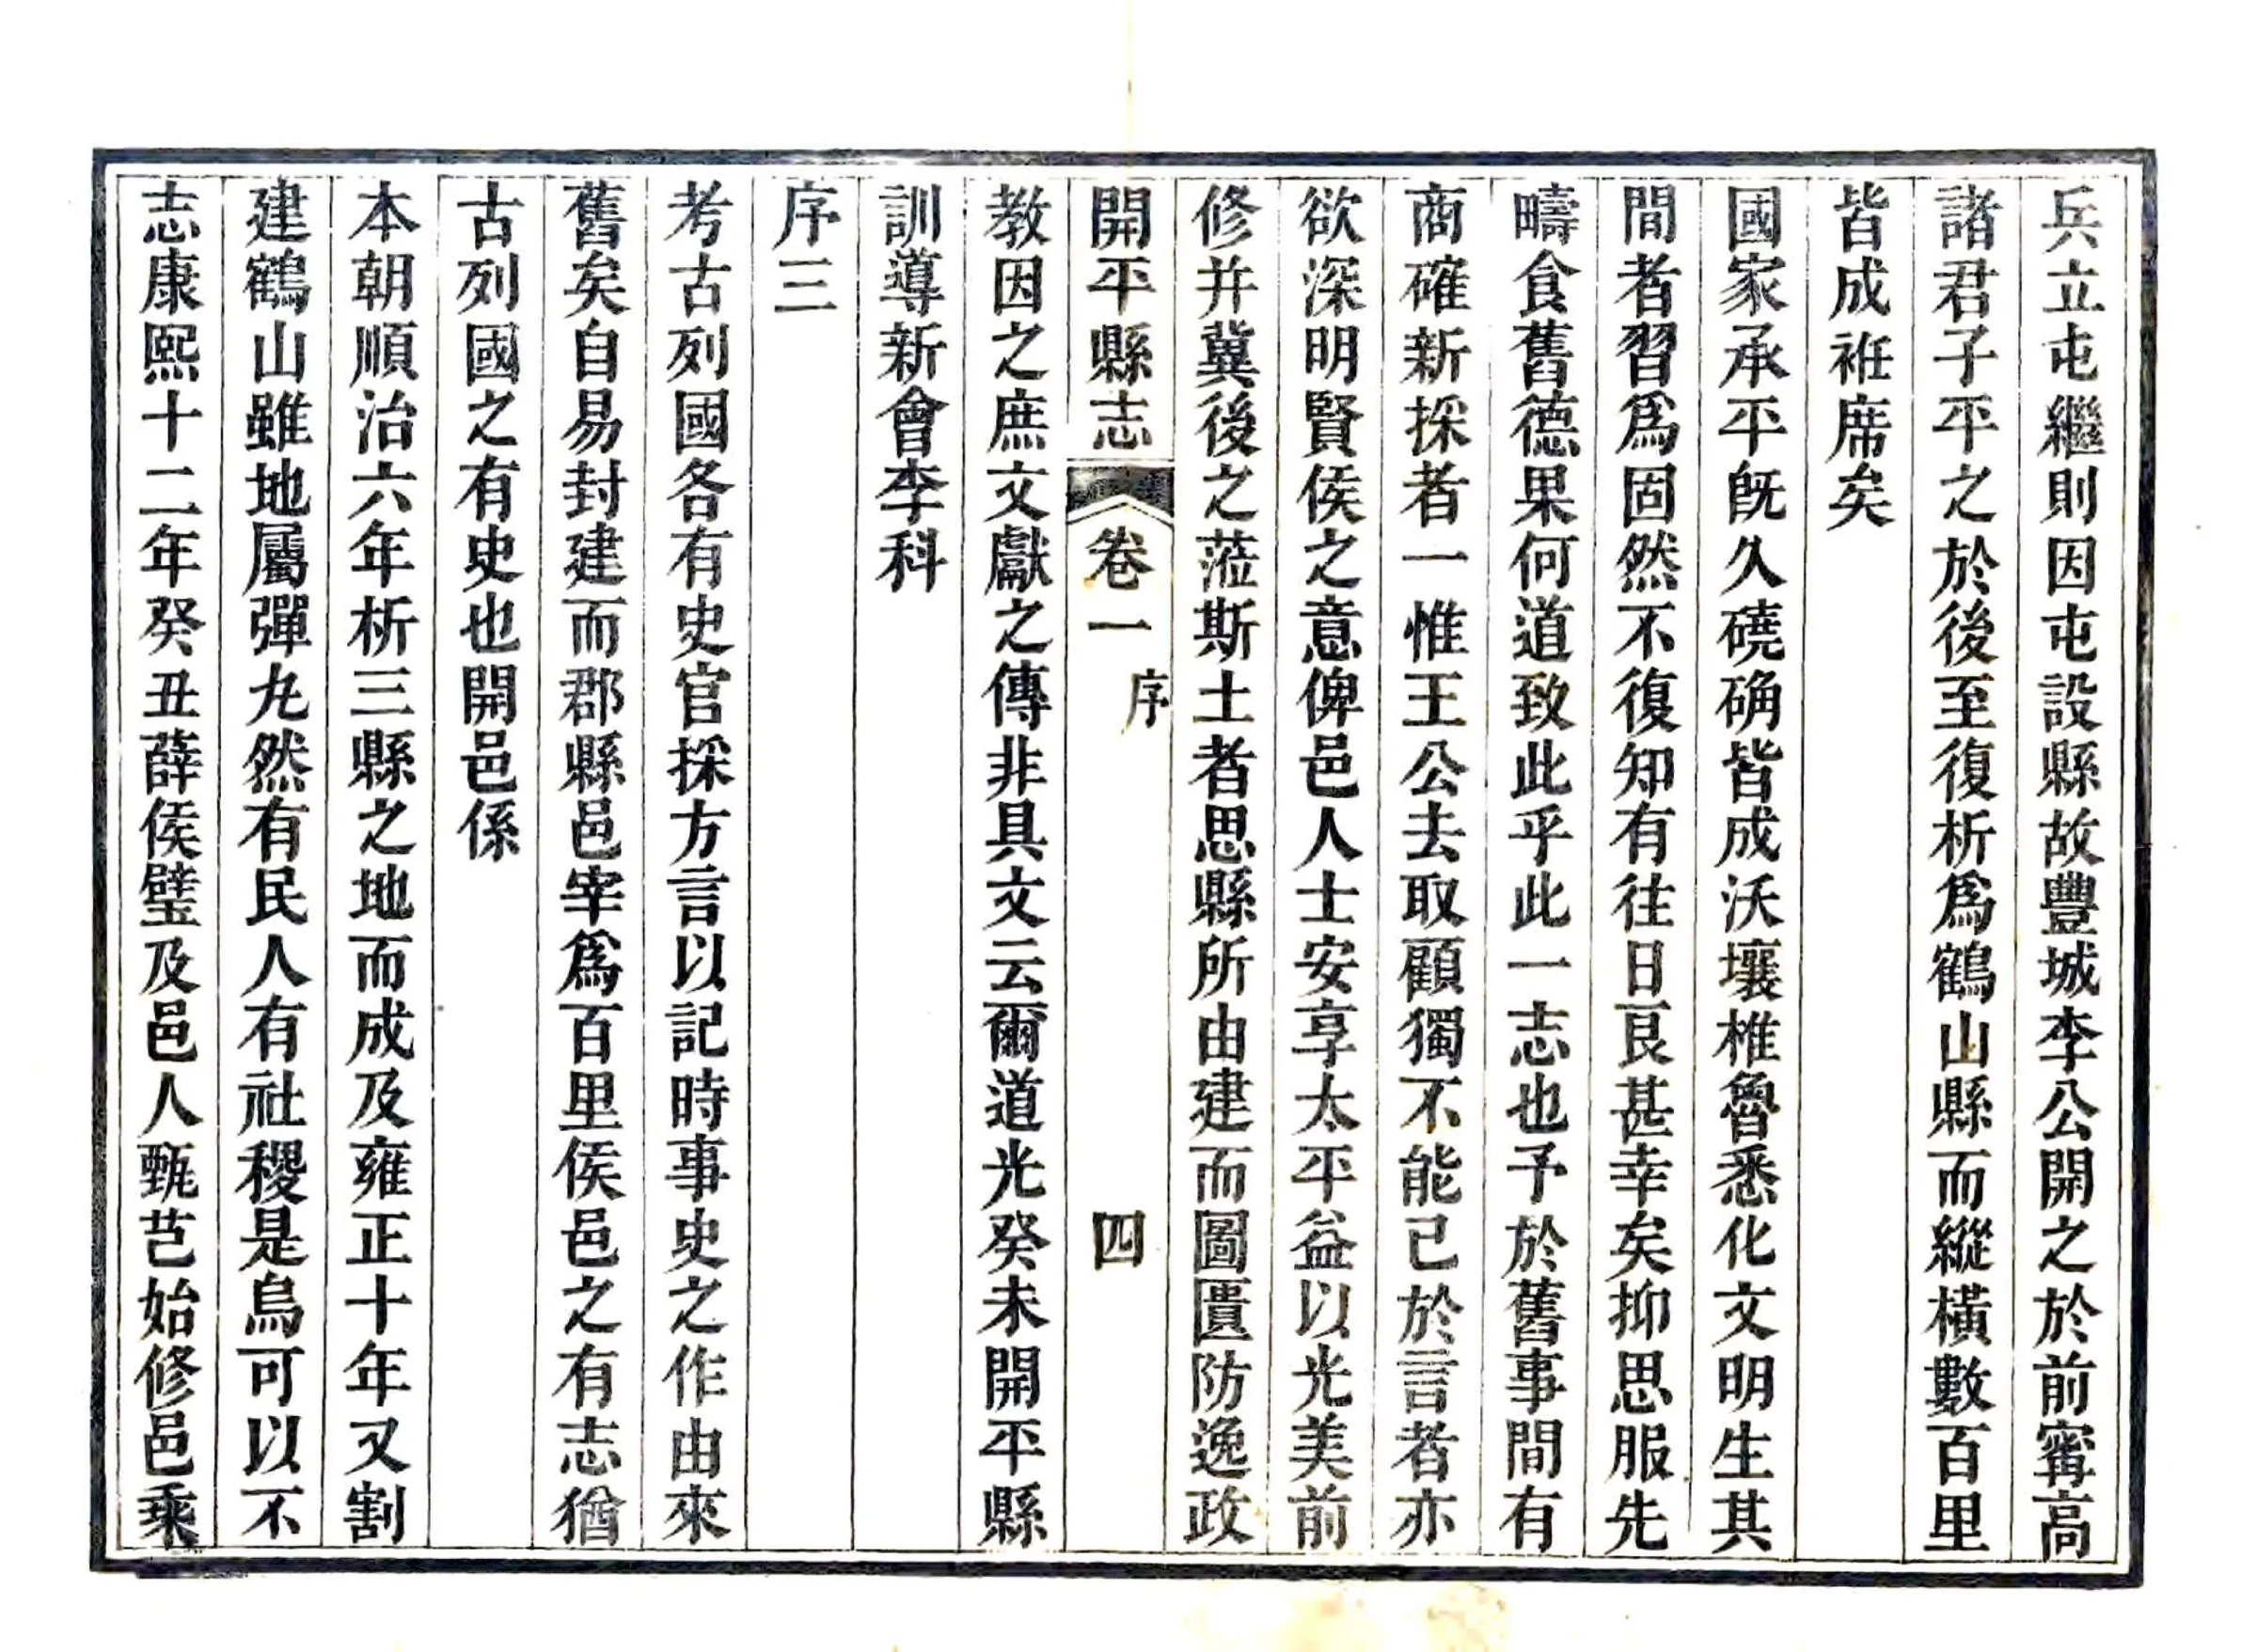 兵立屯繼則因屯設縣故豐城李公開之於前寗高
諸君子平之於後至復析爲鶴山縣而縱橫數百里
皆成袵席矣
國家承平旣久磽确皆成沃壤椎魯悉化文明生其
間者習爲固然不復知有往日艮甚幸矣抑思服先
疇食舊德果何道致此乎此一志也予於舊事間有
商確新採者一惟王公去取顧獨不能已於言者亦
欲深明賢侯之意俾邑人士安享太平益以光美前
修并冀後之蒞斯土者思縣所由建而圖匱防逸政
開平縣志 卷一 序 四
教因之庶文獻之傳非具文云爾道光癸未開平縣
訓導新會李科
序三
考古列國各有史官採方言以記時事史之作由來
舊矣自易封建而郡縣邑宰爲百里侯邑之有志猶
古列國之有史也開邑係
本朝順治六年析三縣之地而成及雍正十年又割
建鶴山雖地屬彈丸然有民人有社稷是烏可以不
志康熙十二年癸丑薛侯璧及邑人甄芑始修邑乘